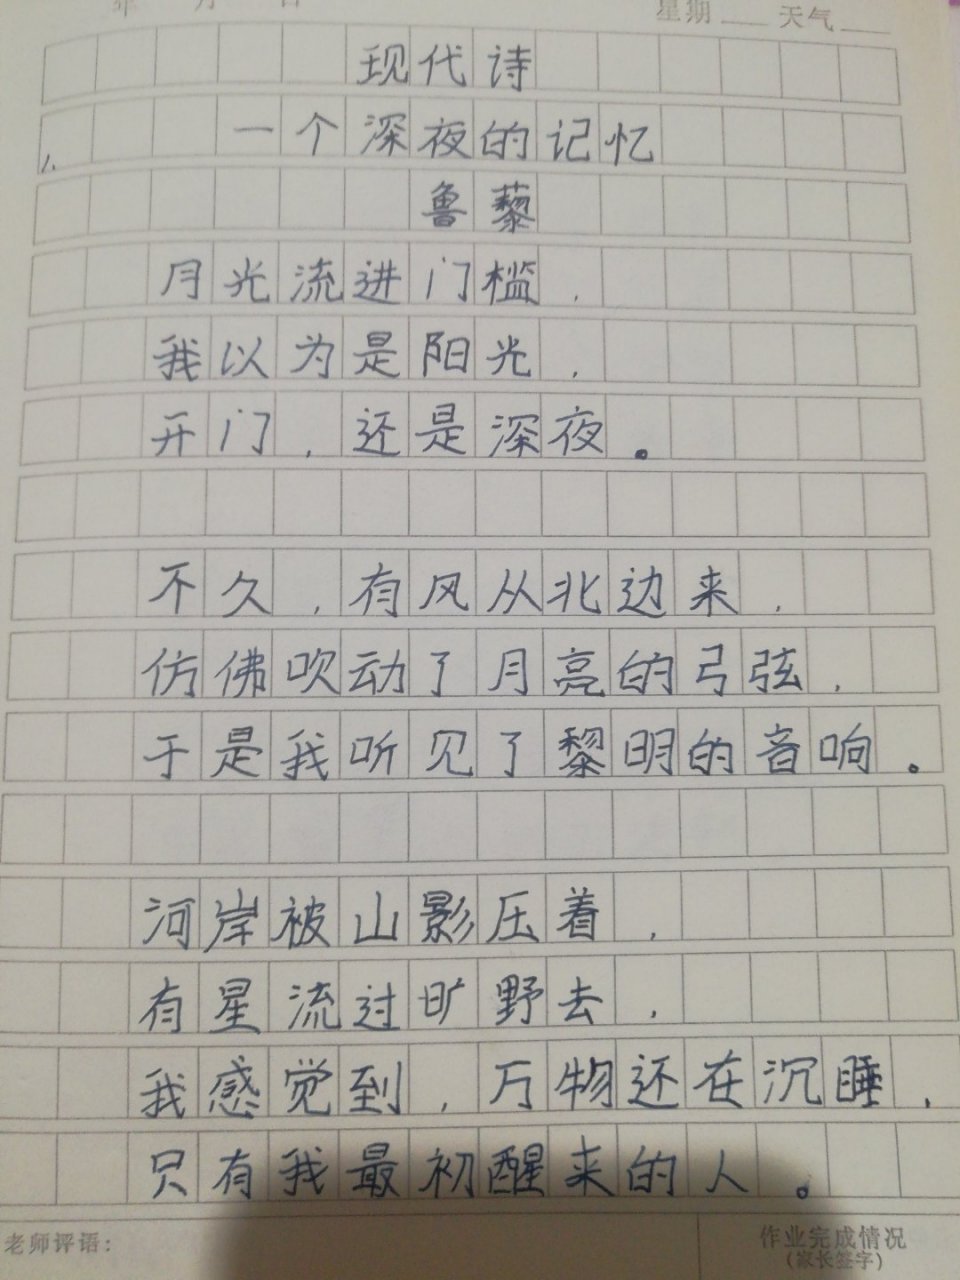 年 月 日 星期 天气
现代诗
1. 一个深夜的记忆
鲁藜
月光流进门槛,
我以为是阳光,
开门,还是深夜。
不久,有风从北边来,
仿佛吹动了月亮的弓弦,
于是我听见了黎明的音响。
河岸被山影压着,
有星流过旷野去,
我感觉到,万物还在沉睡,
只有我最初醒来的人。
老师评语: 作业完成情况
(家长签字)